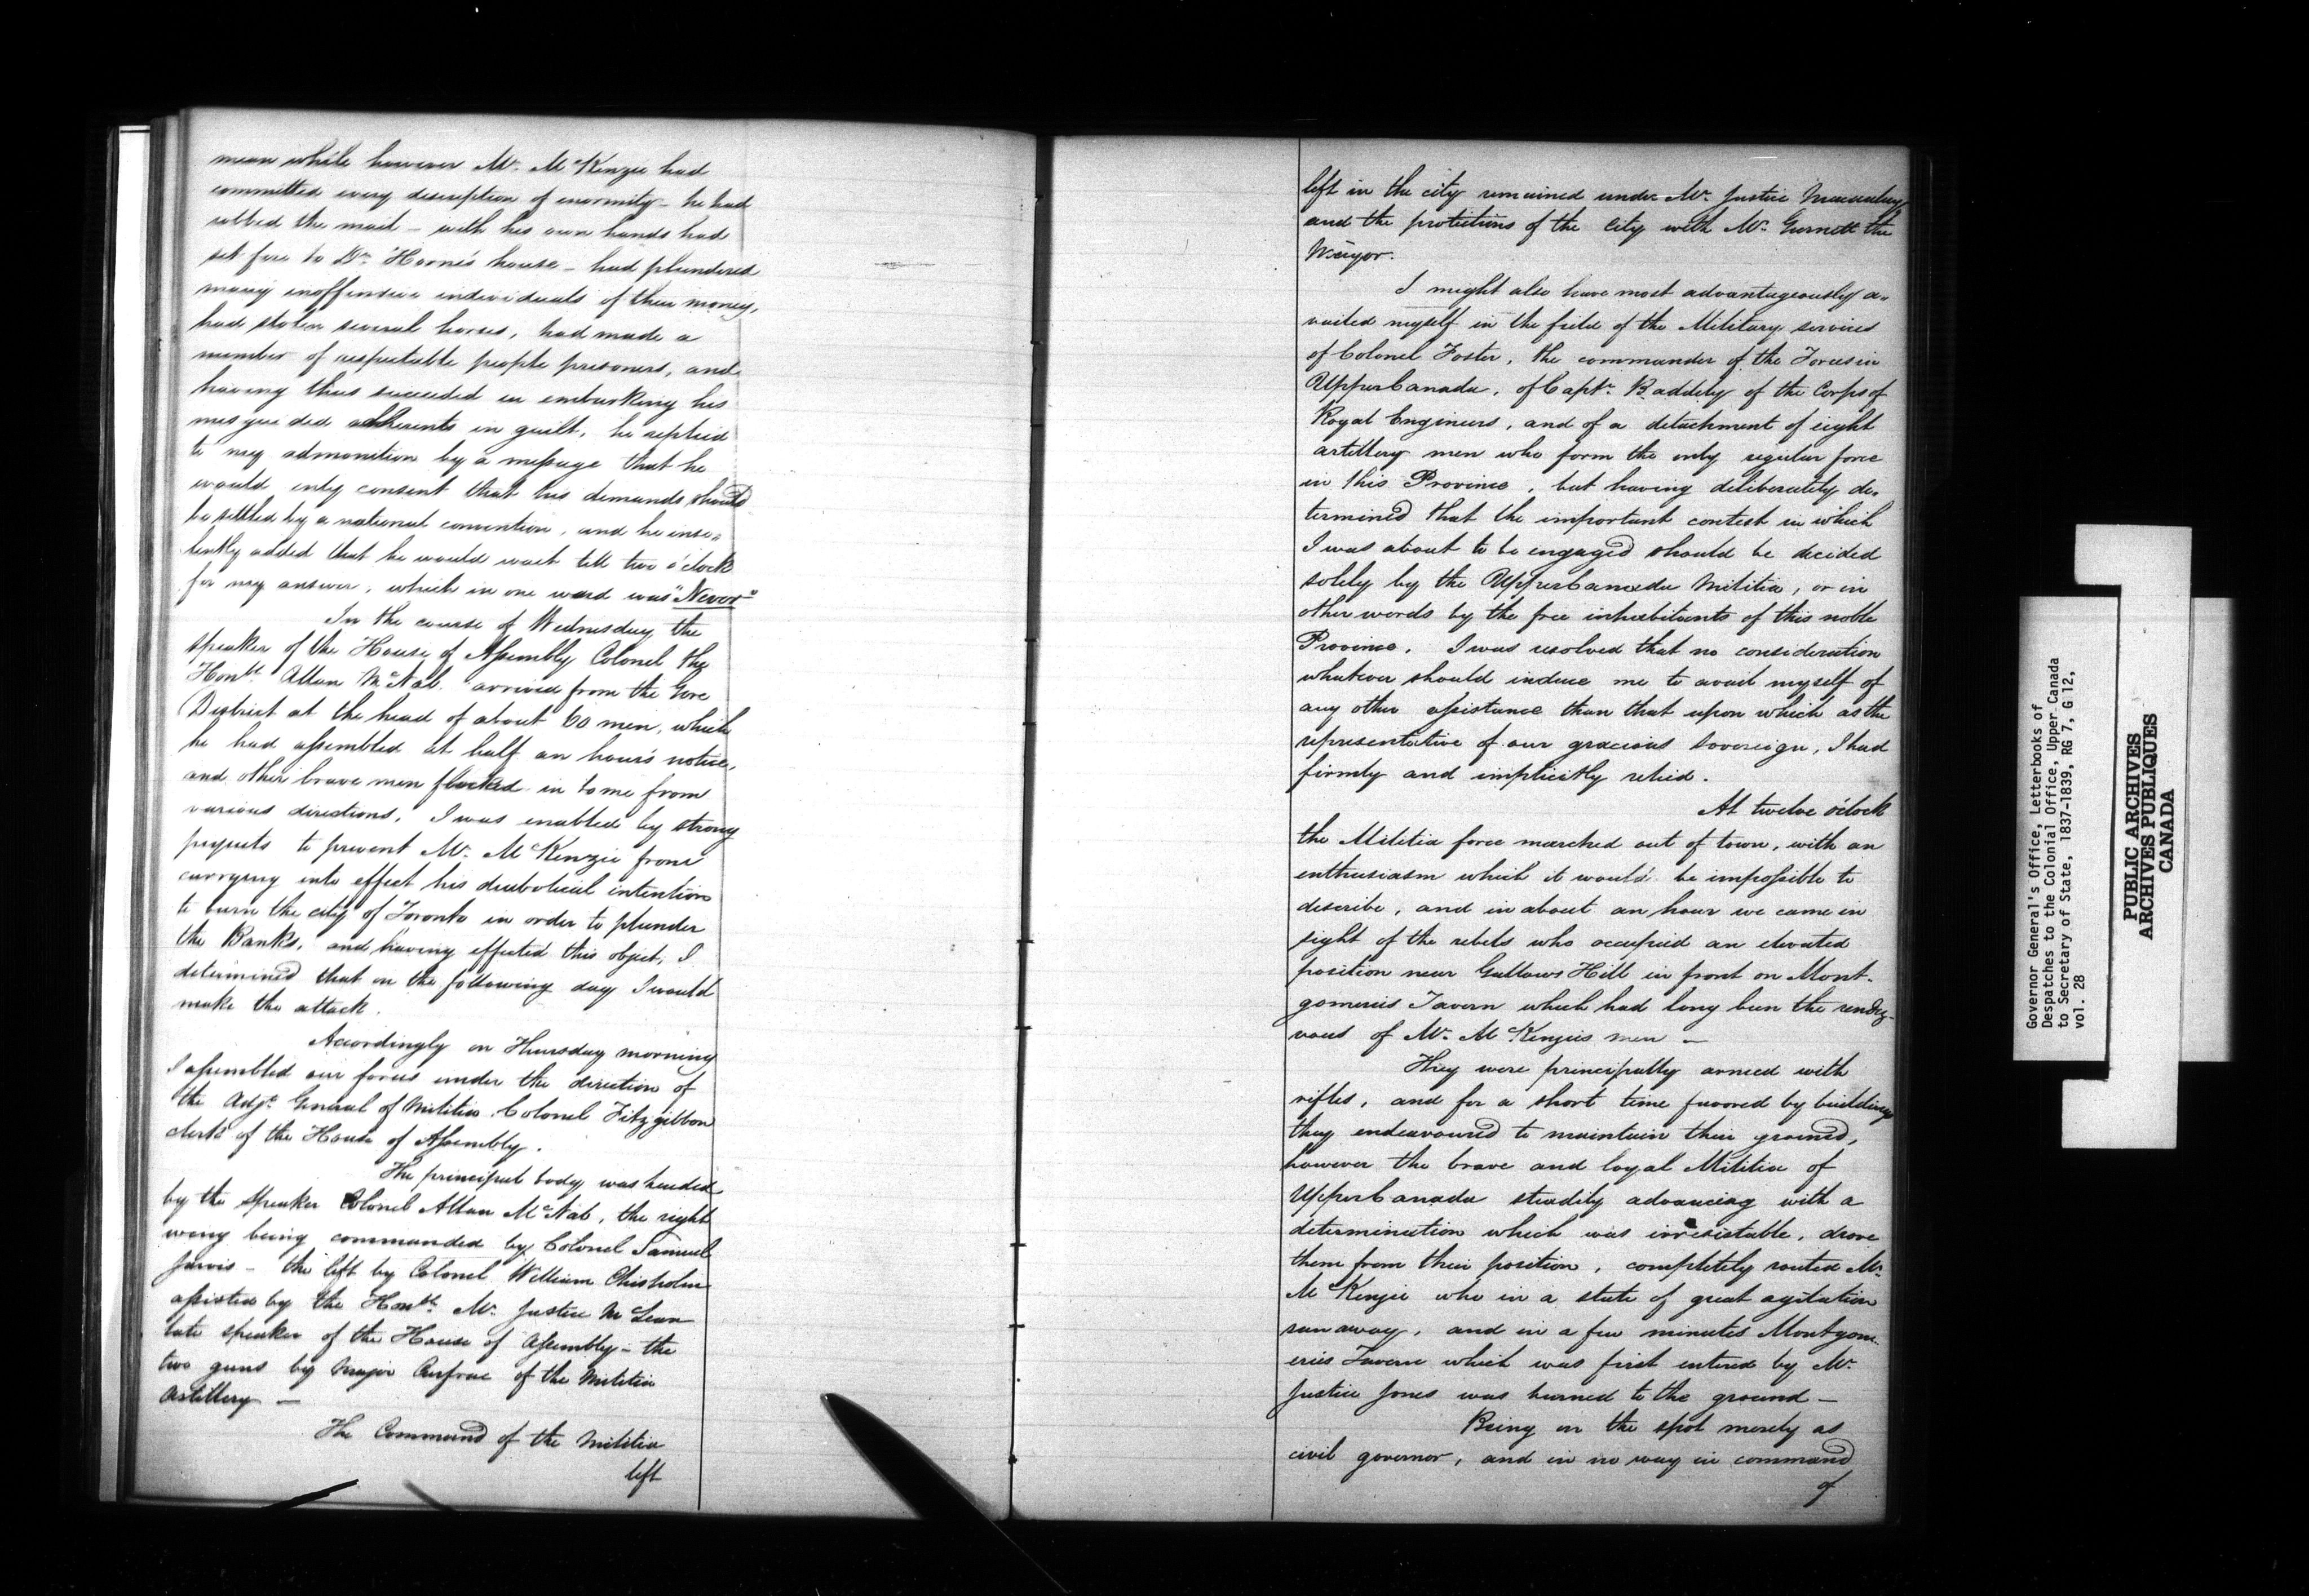 mean while however Mr. McKenzie had
committed every description of enormity - he had
robbed the mail - with his own hands had
set fire to Dr. Horne's house - had plundered
many inoffensive individuals of their money,
had stolen several horses, had made a
number of respectable people prisoners, and
having thus succeeded in embarking his
misguided adherents in guilt, he replied
to my admonition by a message that he
would only consent that his demands should
be settled by a national convention, and he inso„
lently added that he would wait till two o'clock
for my answer, which in one word was "Never"
In the course of Wednesday the
speaker of the House of Assembly Colonel the
Honble. Allan McNab. arrived from the Gore
District at the head of about 60 men, which
he had assembled at half an hour's notice,
and other brave men flocked in to me from
various directions. I was enabled by strong
piquets to prevent Mr. McKenzie from
carrying into effect his diabolical intention
to burn the city of Toronto in order to plunder
the Banks, and having effected this object, I
determined that on the following day I would
make the attack.
Accordingly on Thursday morning
I assembled our forces under the direction of
the Adjt. General of Militia. Colonel Fitzgibbon
clerk of the House of Assembly.
The principal body was headed
by the Speaker Colonel Allan McNab, the right
wing being commanded by Colonel Samuel
Jarvis - the left by Colonel William Chisholm
assisted by the Honble. Mr. Justice McLean
late speaker of the House of Assembly - the
two guns by Major Carfrae of the Militia
Artillery —
The Command of the Militia
left
left in the city remained under Mr. Justice Macaulay
and the protections of the City with Mr. Gurnett the
Mayor.
I might also have most advantageously a„
vailed myself in the field of the Military services
of Colonel Foster, the commander of the Forces in
Upper Canada, of Captn. Baddely of the Corps of
Royal Engineers, and of a detachment of eight
artillery men who form the only regular force
in this Province, but having deliberately de„
termined that the important contest in which
I was about to be engaged should be decided
solely by the Upper Canada Militia, or in
other words by the free inhabitants of this noble
Province. I was resolved that no consideration
whatever should induce me to avail myself of
any other assistance than that upon which as the
representative of our gracious Sovereign, I had
firmly and implicitly relied.
At twelve o'clock
the Militia force marched out of town, with an
enthusiasm which it would be impossible to
describe, and in about an hour we came in
sight of the rebels who occupied an elevated
position near Gallows Hill in front on Mont-
gomeries Tavern which had long been the rendez-
vous of Mr. McKenzies men —
They were principally armed with
rifles, and for a short time favored by buildings
they endeavoured to maintain their ground,
however the brave and loyal Militia of
Upper Canada steadily advancing with a
determination which was irresistable, drove
them from their position, completely routed Mr.
McKenzie who in a state of great agitation
ran away, and in a few minutes Montgom-
eries Tavern which was first entered by Mr.
Justice Jones was burned to the ground —
Being on the spot merely as
civil governor, and in no way in command
of
Governor General's Office, Letterbooks of
Despatches to the Colonial Office, Upper Canada
to Secretary of State, 1837-1839, RG 7, G 12,
vol. 28
PUBLIC ARCHIVES
ARCHIVES PUBLIQUES
CANADA